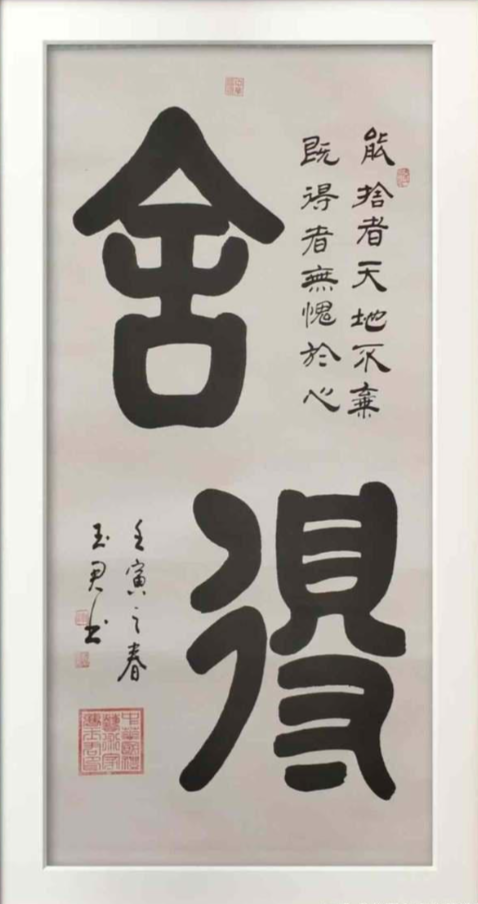 舍得
能捨者天地不棄
既得者無愧於心
壬寅之春
玉君书